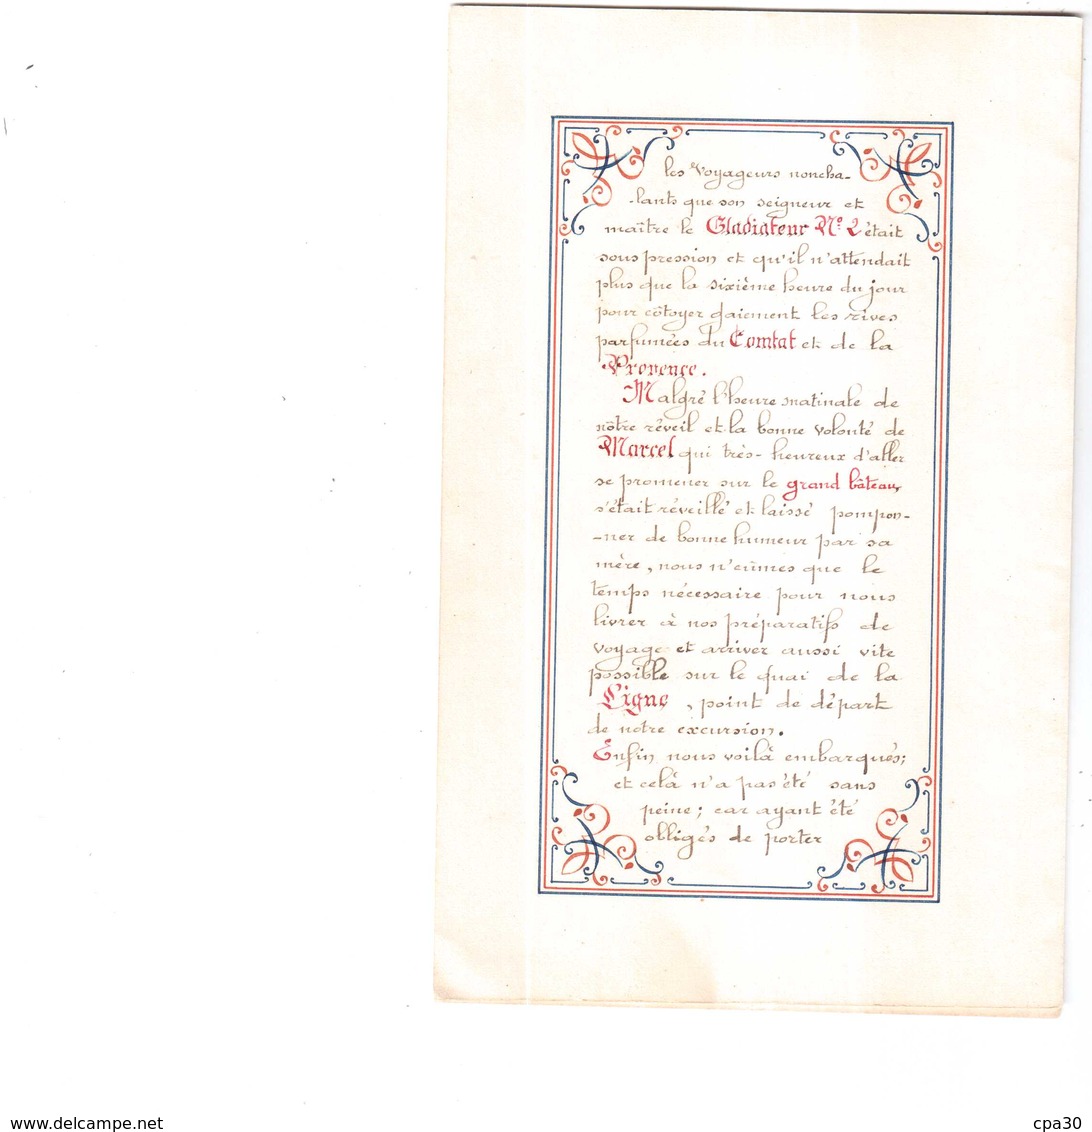 les Voyageurs noncha-
-lants que son seigneur et
maître le Gladiateur Nº 2 était
sous pression et qu'il n'attendait
plus que la sixième heure du jour
pour côtoyer gaiement les rives
parfumées du Comtat et de la
Provence.
Malgré l'heure matinale de
nôtre réveil et la bonne volonté de
Marcel qui très-heureux d'aller
se promener sur le grand bâteau,
s'était réveillé et laissé pompon-
-ner de bonne humeur par sa
mère, nous n'eûmes que le
temps nécessaire pour nous
livrer à nos préparatifs de
voyage et arriver aussi vite
possible sur le quai de la
Ligne, point de départ
de notre excursion.
Enfin nous voilà embarqués;
et celà n'a pas été sans
peine; car ayant été
obligés de porter
www.delcampe.net
cpa30